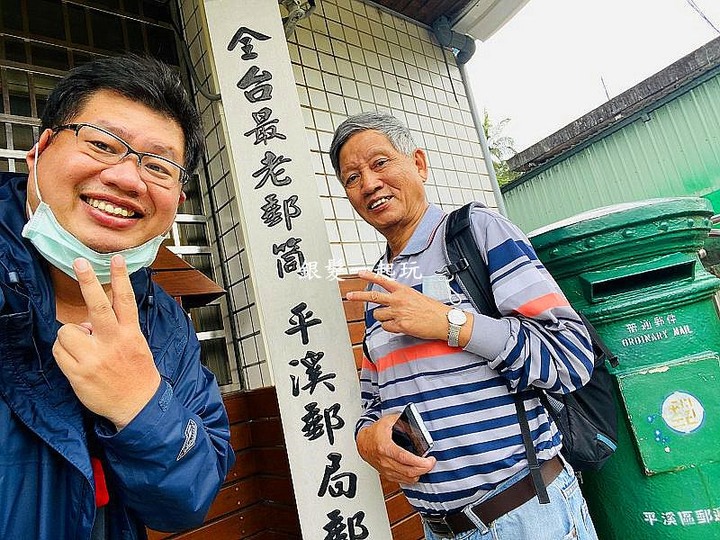 全台最老郵筒 平溪郵局郵
銀髮一起玩
普通郵件
ORDINARY MAIL
平溪區郵遞